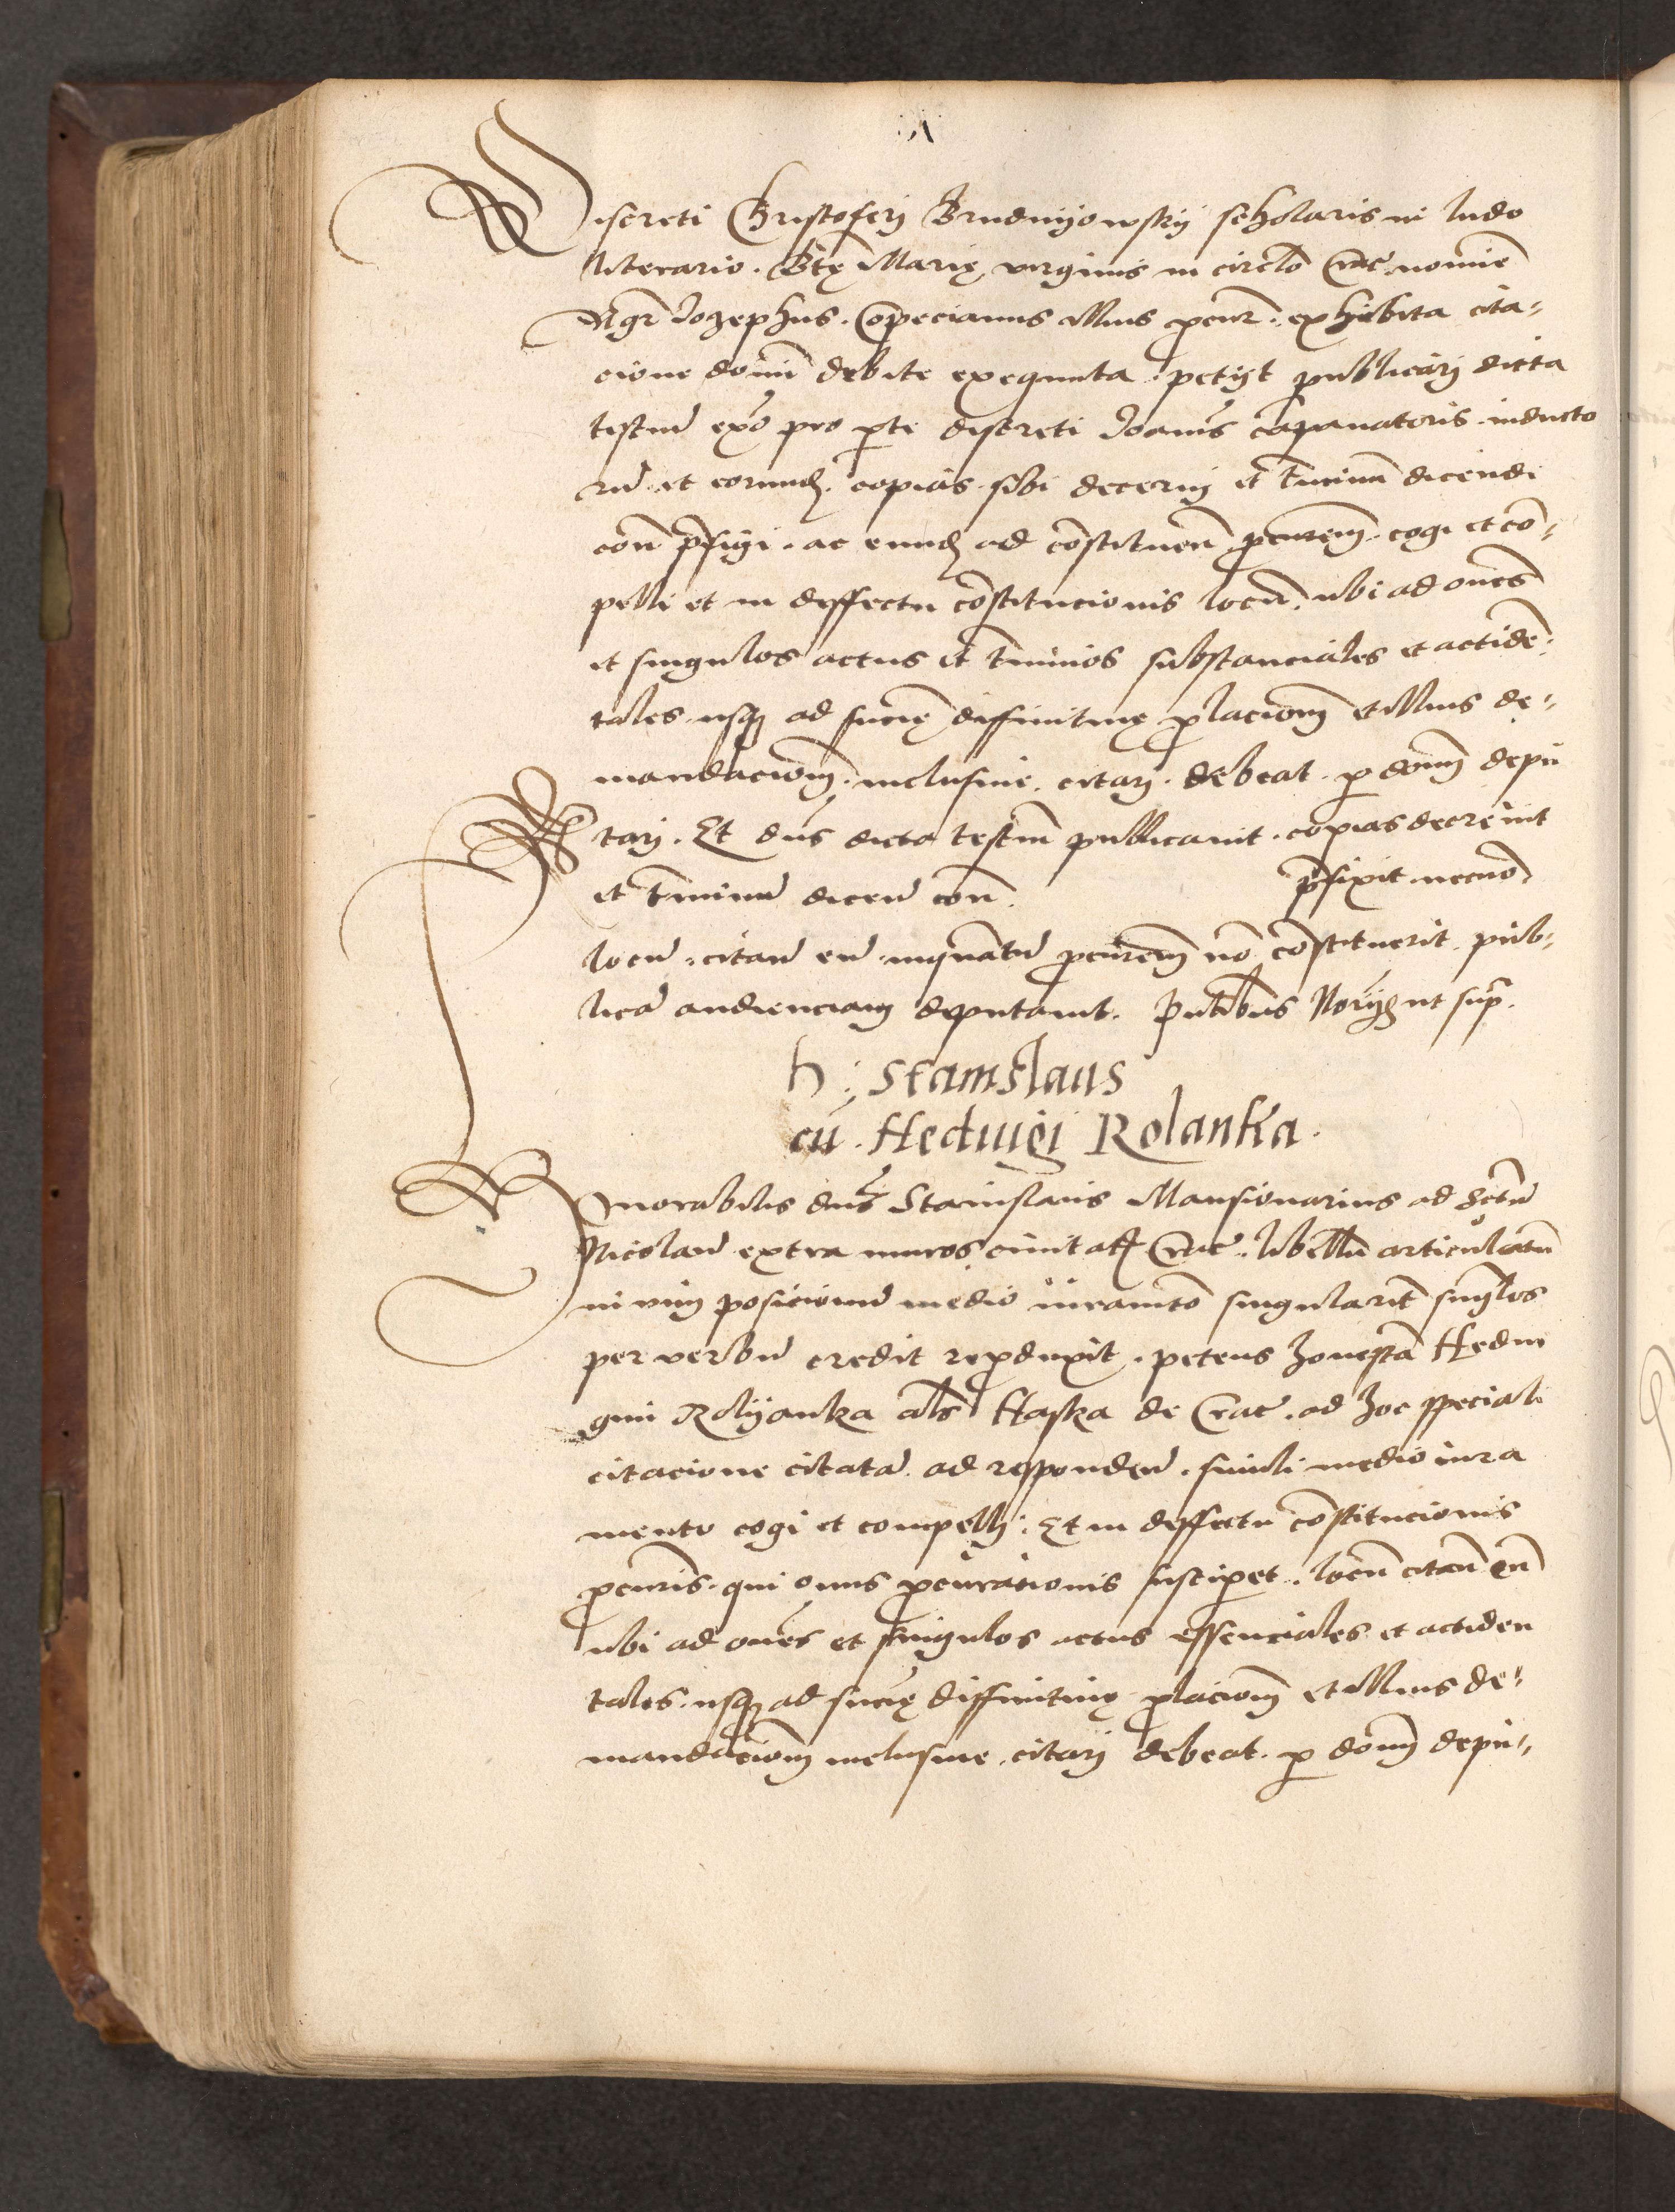 Discreti Christoferj Brudnijowskij scholaris in ludo
literario. Btę Marię virginis in circlo Crac nomine
Mgr Jozephus. Copecianus illius procur. exhibita cita-
cione domi debite exequuta. petijt publicarj dicta
testiu exo pro pte discreti Joanis campanatoris inducto
ru et eorund. copias sibi decernj et tminu dicendi
con pfigi. ac eund ad constituen procurem. cogi et co-
pelli et in deffectu constitucionis locu. ubi ad ones
et singulos actus et tminos substanciales et actide-
tales usq ad sncię diffinitiuę placionem et illius de-
mandacionem. inclusiue. citarj. debeat. p domi depu
tarj. Et dns dicta testiu publicauit. copias decreuit
et tminu dicend con. pfixit necno
locu. citand eu. inquatu procurem no constituerit pub-
lica audienciam deputauit. Pntibus Norijs ut supra.
h: Stanislaus
cu. Heduigi Rolanka.
Honorabilis dns Stanislaus Mansionarius ad Sctu
Nicolau extra muros ciuitatis Crac. libellu articulatu
in vim posicionu medio iuramto singularit singlos
per verbu credit reproduxit. petens honestam Hedui
gim Rolijanka als Haska de Crac. ad hoc speciali
citacione citata. ad respondend. simili medio iura
mento cogi et compellj. Et in deffectu constitucionis
procuris. qui onus procurationis susciperet. locu citand eu
ubi ad ones et singulos actus essenciales et actiden
tales. usq ad sncię diffinitiuę placionem et illius de-
mandacionem inclusiue citarj debeat. p domi depu-